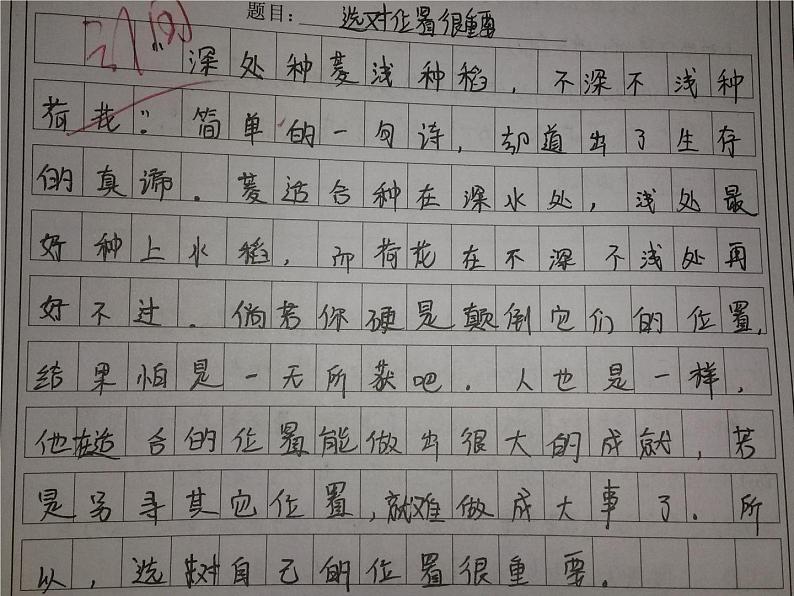 题目：选对位置很重要
“深处种菱浅种稻，不深不浅种
荷花”。简单的一句诗，却道出了生存
的真谛．菱适合种在深水处，浅处最
好种上水稻，而荷花在不深不浅处再
好不过．倘若你硬是颠倒它们的位置，
结果怕是一无所获吧．人也是一样，
他在适合的位置能做出很大的成就，若
是另寻其它位置，就难做成大事了．所
以，选对自己的位置很重要．